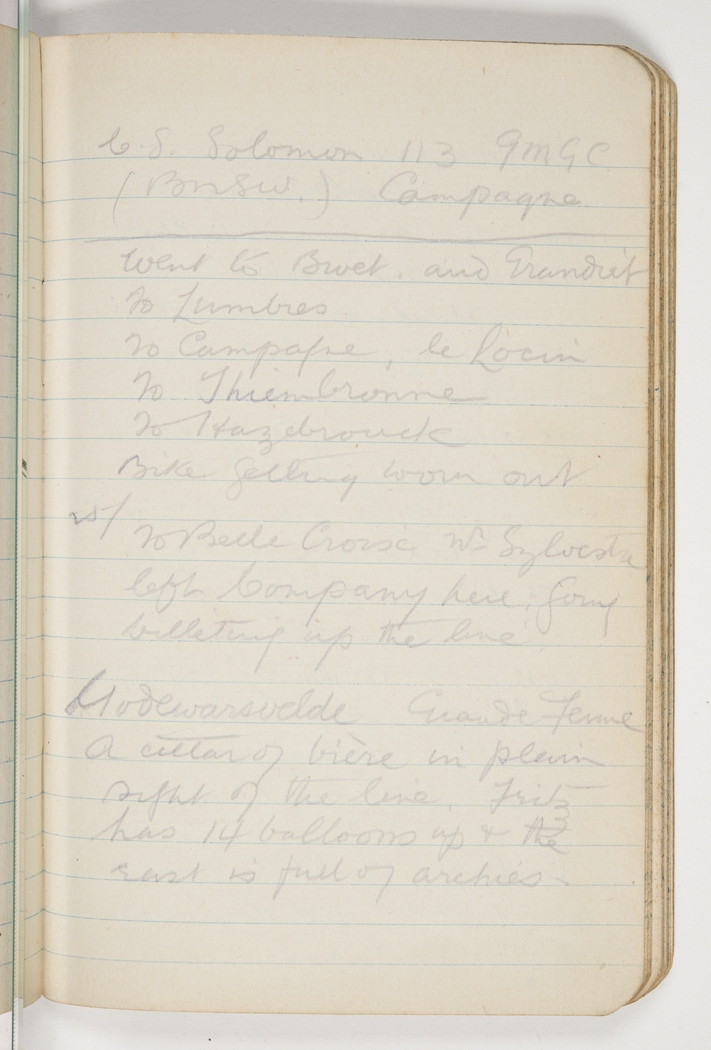 C. S. Solomon 113 9MGC
(BNSW.) Campagne
Went to Bwet. and Grandrèt
to Lumbres
to Campagne, le Locin
to Thiembronne
to Hazebrouck
Bike getting worn out
to Belle Croise Wn Sylvestre
left Company here, going
billeting up the line
Godewarsvelde Grande Ferme
A cellar of bière in plain
sight of the line, Fritz
has 14 balloons up & the
east is full of archies.